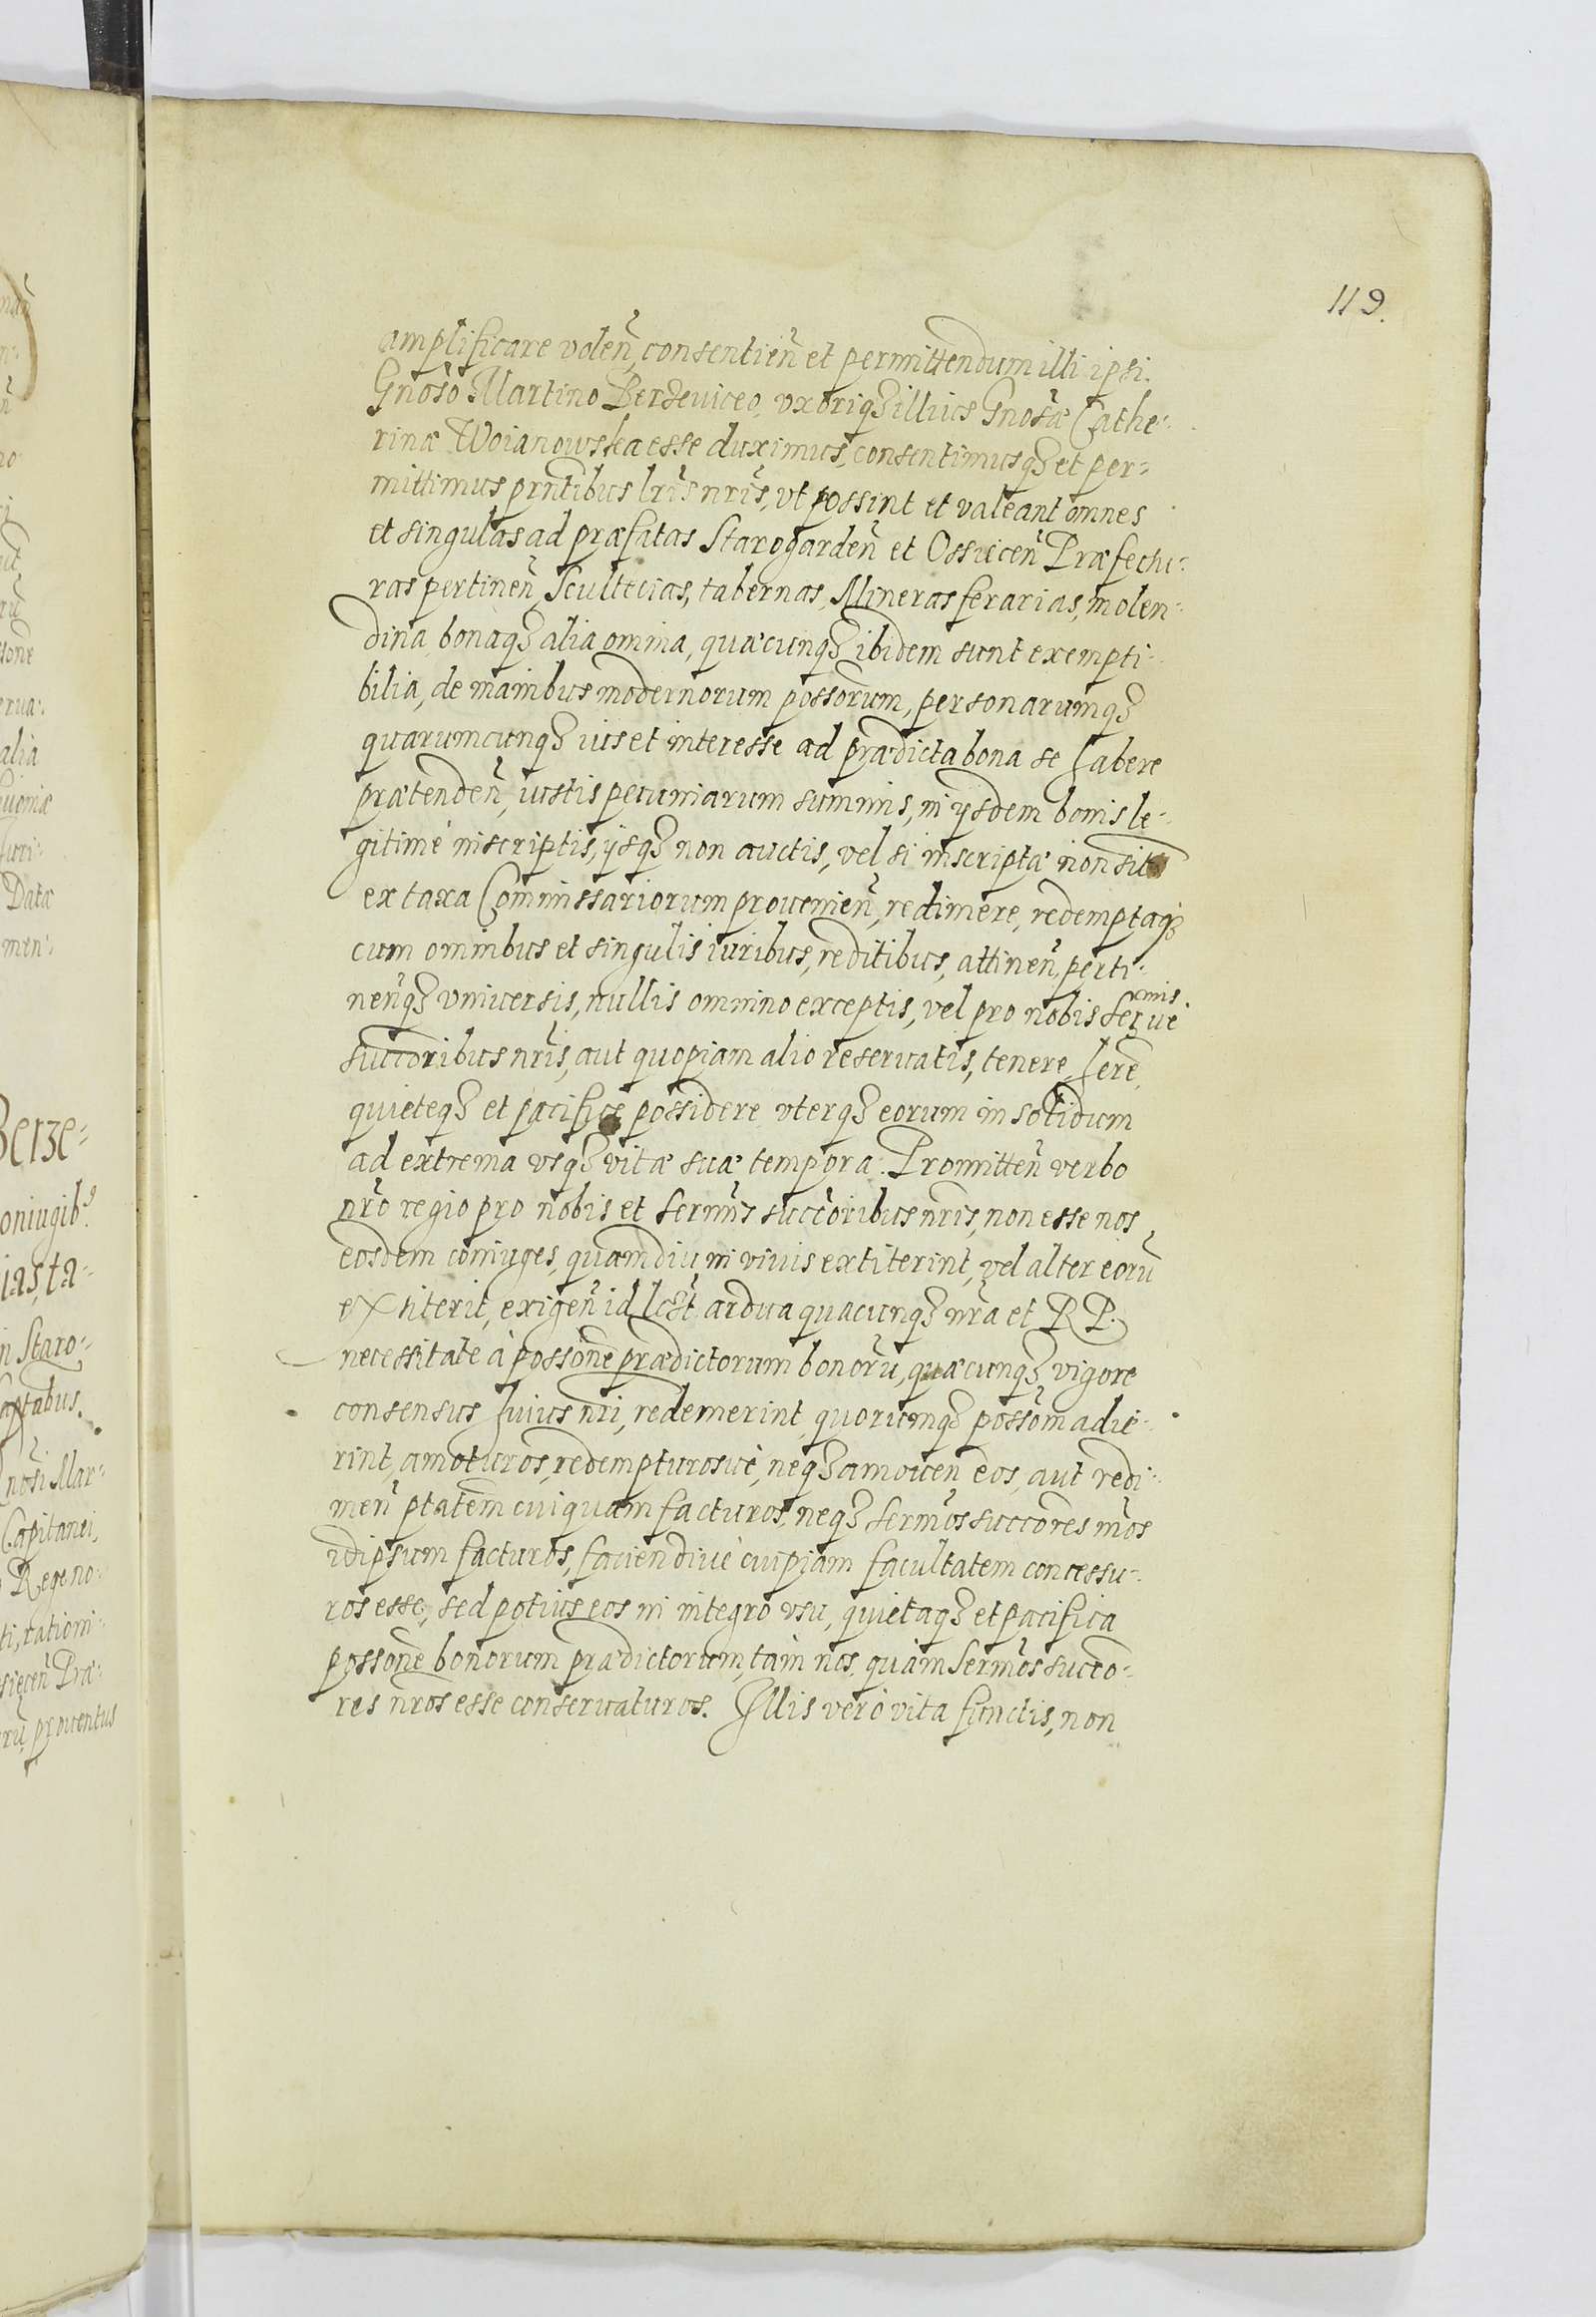 119.
amplificare volen̄, consentien̄ et permittendum illi ipsi
Gnōso Martino Berzeviceo, vxoriq₃ illius Gnōsæ Cathe-
rinæ Woianowska esse duximus, consentimusq₃ et per-
mittimus prn̄tibus lr̄is nr̄is, vt possint et valeant omnes
et singulas ad præfatas Starogarden̄ et Ossiecen̄ Præfectu-
ras pertinen̄ Scultecias, tabernas, Mineras ferarias, molen-
dina, bonaq₃ alia omnia, quæcunq₃ ibidem sunt exempti-
bilia, de manibus modernorum possorum, personarumq₃
quarumcunq₃ ius et interesse ad prædicta bona se habere
prætenden̄, iustis pecuniarum summis, in ijsdem bonis le-
gitimè inscriptis, ijsq₃ non auctis, vel si inscripta non sit
ex taxa Commissariorum prouenien̄, redimere, redemptaq₃
cum omnibus et singulis iuribus, reditibus, attinen̄, perti-
nen̄q₃ vniuersis, nullis omnino exceptis, vel pro nobis Serᵐⁱˢue
succōribus nr̄is, aut quopiam alio reseruatis, tenere, here
quieteq₃ et pacifice possidere vterq₃ eorum in solidum
ad extrema vsq₃ vitæ suæ tempora. Promitten̄ verbo
nr̄o regio pro nobis et Serm̄is succōribus nr̄is, non esse nos
eosdem coniuges, quamdiu in viuis extiterint, vel alter eorū
extiterit, exigen̄ id lcēt ardua quacunq₃ nr̄a et R P.
necessitate à possōne prædictorum bonorū, quæcunq₃ vigore
consensus huius nr̄i, redemerint, quorumq₃ possōm adie-
rint, amoturos, redempturosuè, neq₃ amouen̄ eos, aut redi-
men̄ ptatem cuiquam facturos, neq₃ Serm̄os succōres nr̄os
idipsum facturos, faciendiuè cuipiam facultatem concessu-
ros esse, sed potius eos in integro vsu, quietaq₃ et pacifica
possōne bonorum prædictorum, tàm nos, quàm Serm̄os succo-
res nr̄os esse conseruaturos. Illis verò vita functis, non